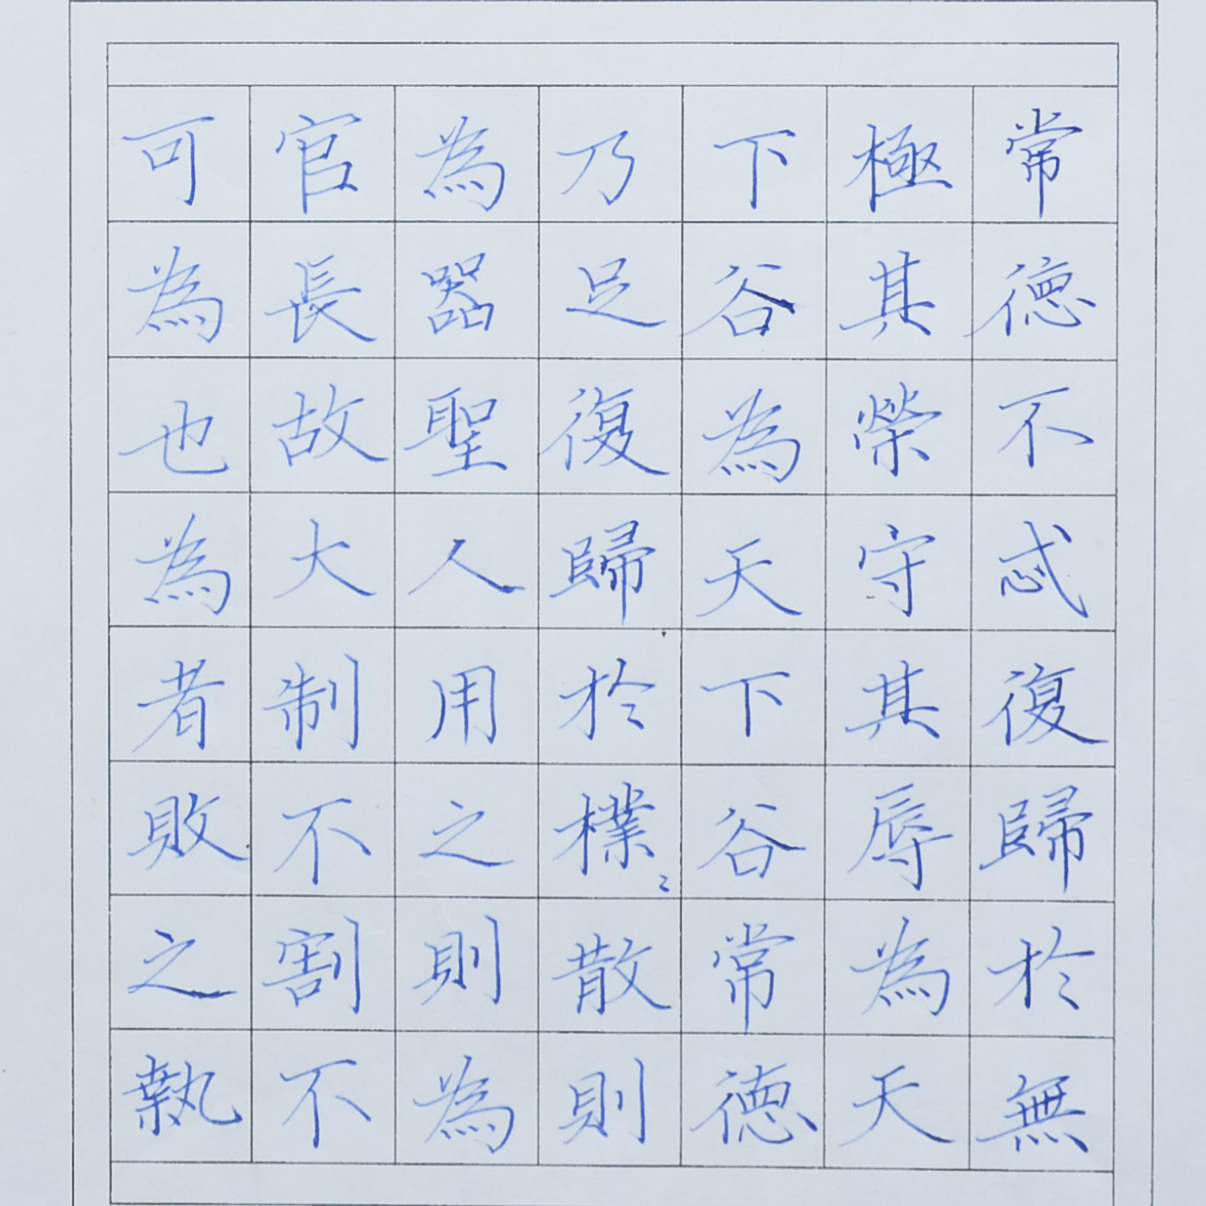 常德不忒復歸於無
極其榮守其辱為天
下谷為天下谷常德
乃足復歸於樸〻散則
為器聖人用之則為
官長故大制不割不
可為也為者敗之執